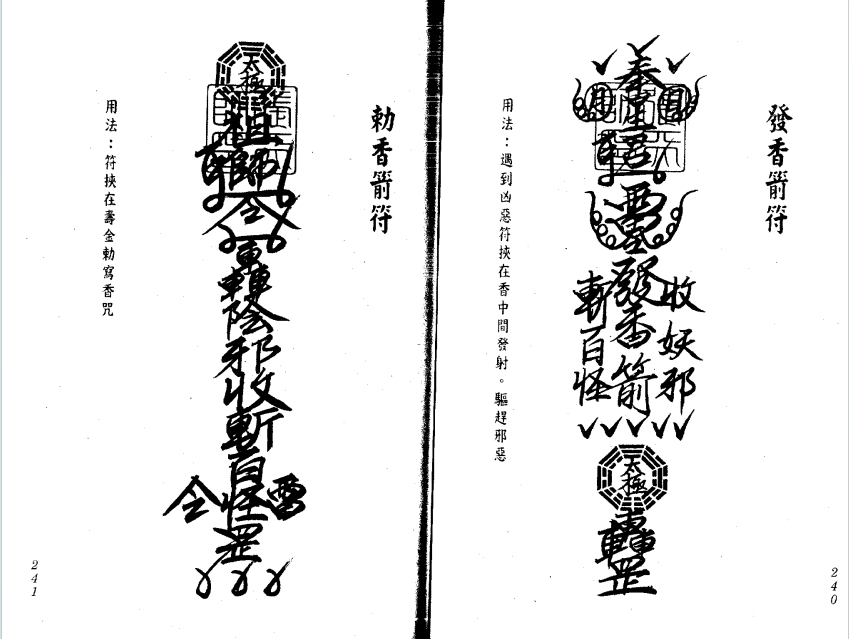 發香箭符
奉
收妖邪
發香箭
斬百怪
太極
轟
罡
用法：遇到凶惡符挾在香中間發射。驅趕邪惡
240
勅香箭符
太極
祖師
令
轟
陰邪收斬百怪
令
罡
用法：符挾在壽金勅寫香咒
241